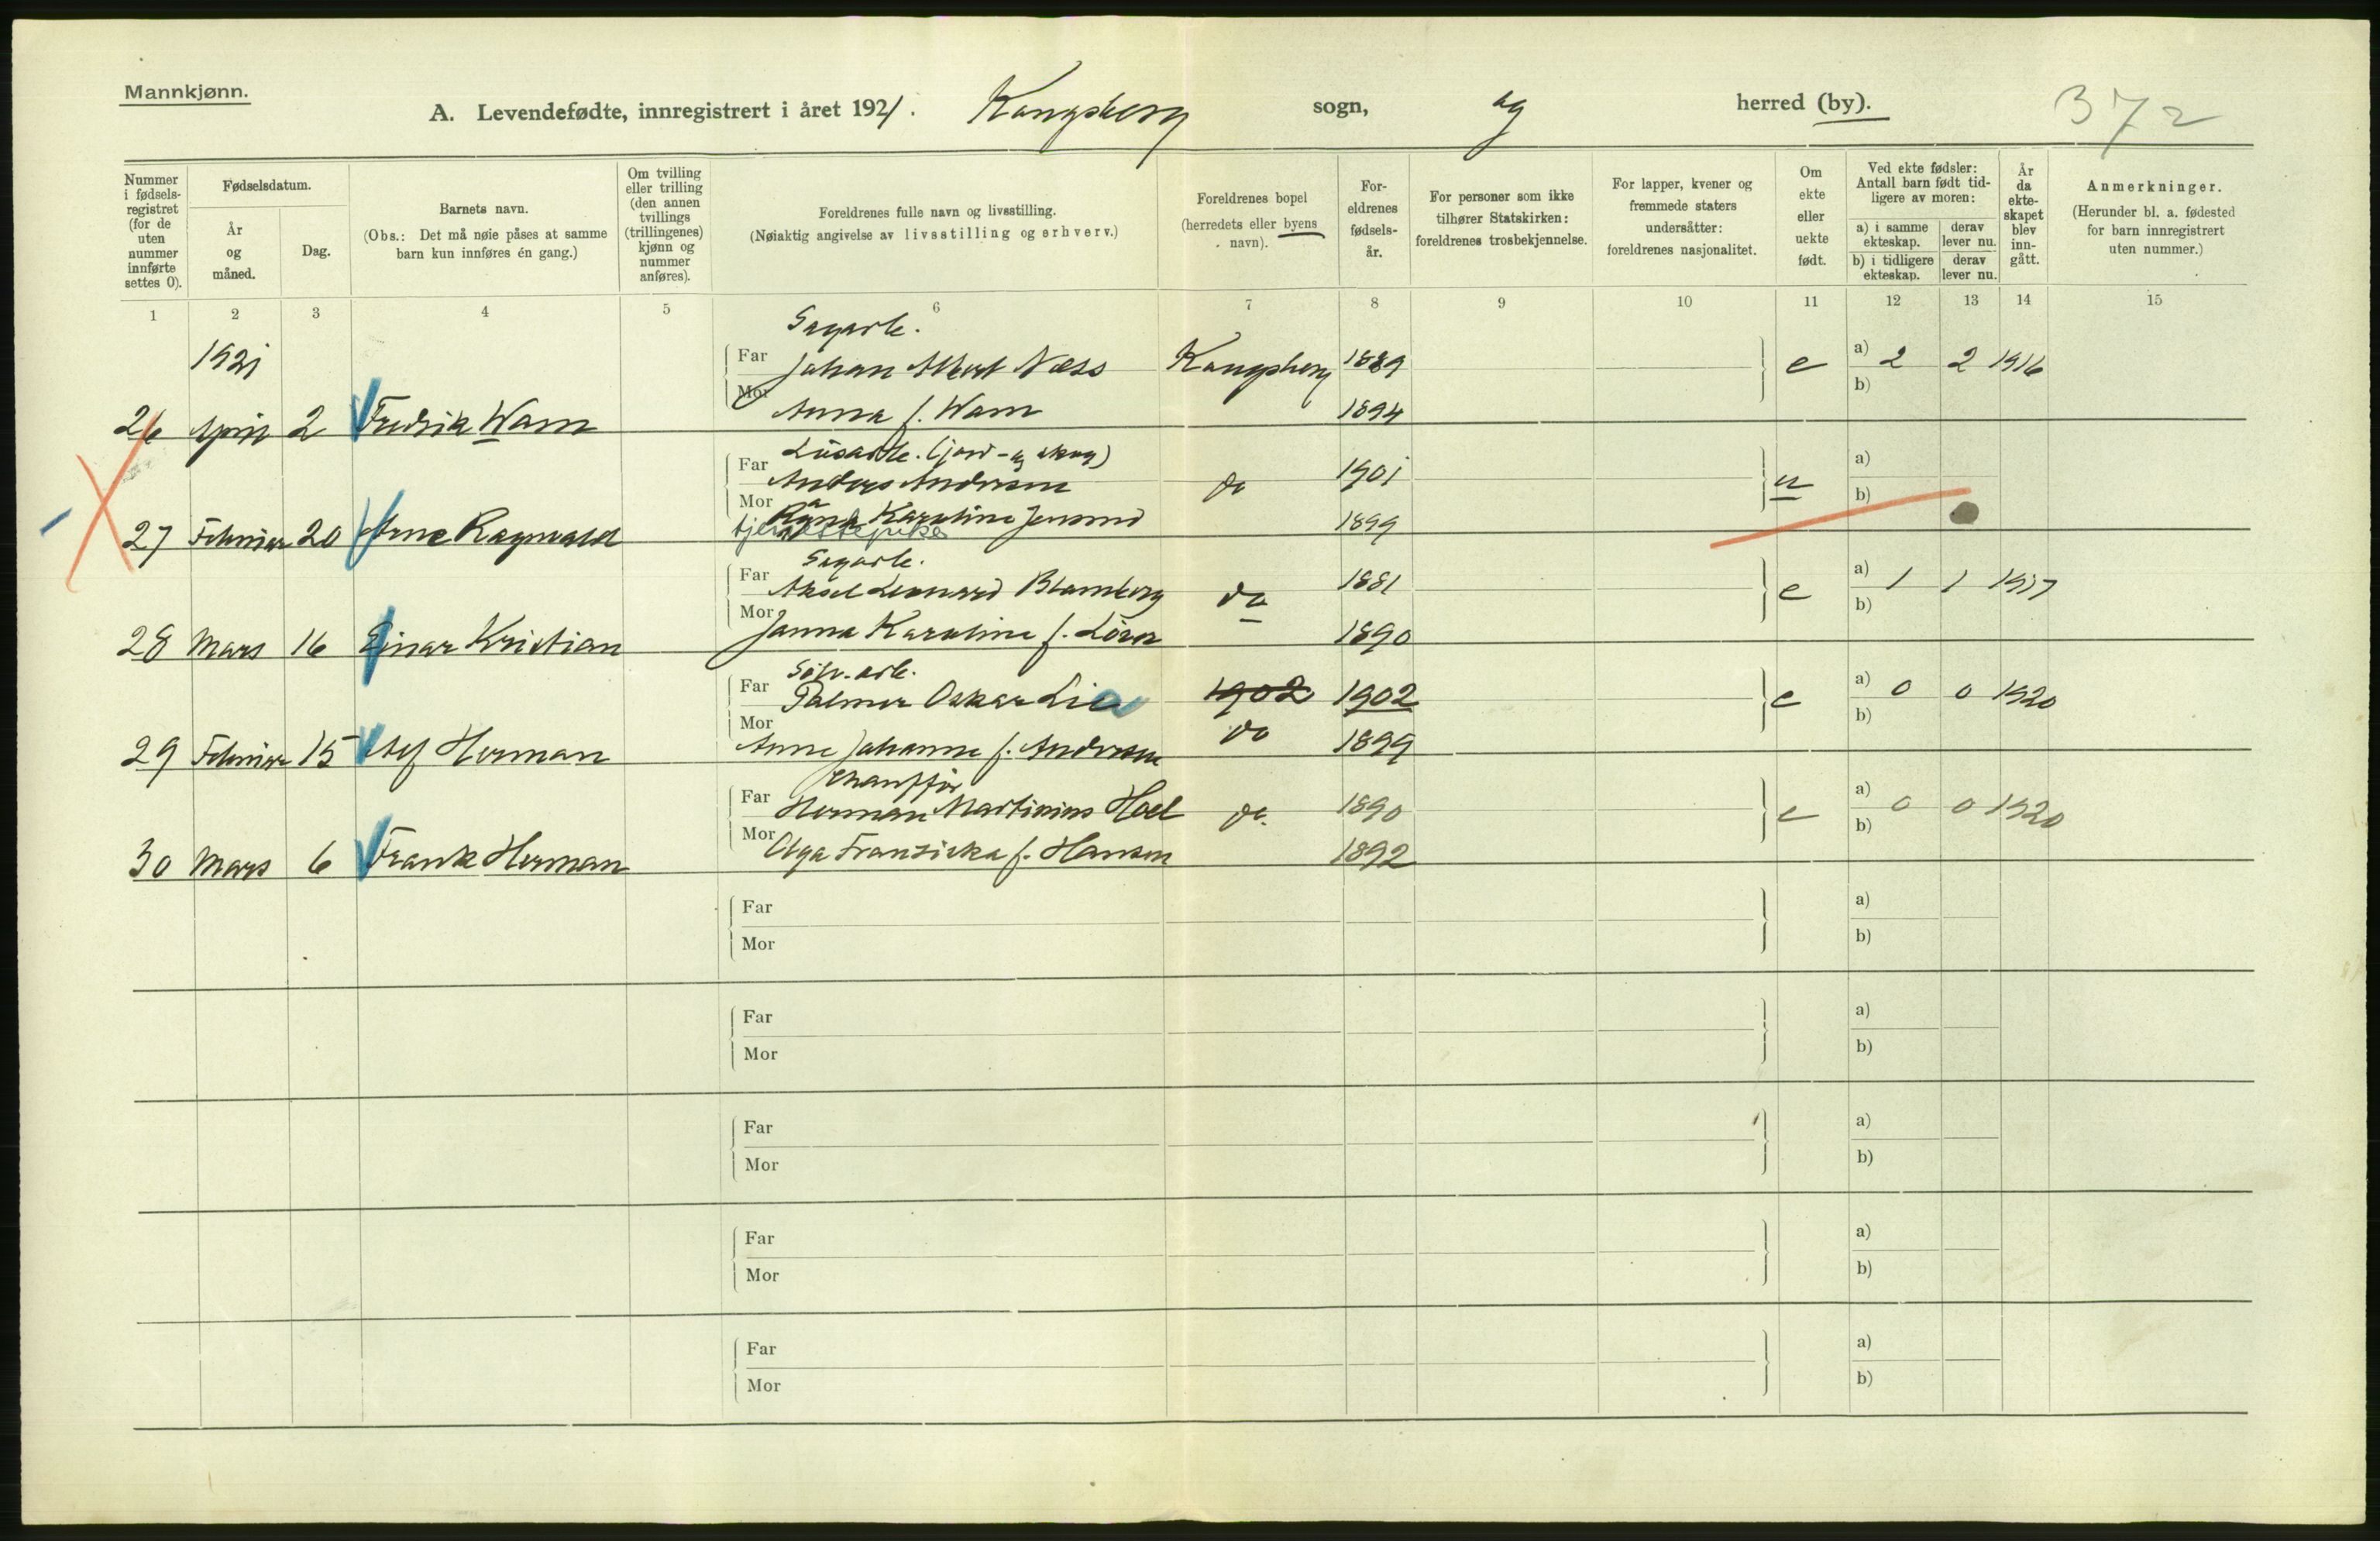 Mannkjønn.
A. Levendefødte, innregistrert i året 1921. Kongsberg sogn, og herred (by). 372
Nummer i fødsels-registret (for de uten nummer innførte settes 0).
Fødselsdatum.
År og måned.
Dag.
Barnets navn.
(Obs.: Det må nøie påses at samme barn kun innføres én gang.)
Om tvilling eller trilling (den annen tvillings (trillingenes) kjønn og nummer anføres).
Foreldrenes fulle navn og livsstilling.
(Nøiaktig angivelse av livsstilling og erhverv.)
Foreldrenes bopel
(herredets eller byens navn).
For-eldrenes fødsels-år.
For personer som ikke tilhører Statskirken: foreldrenes trosbekjennelse.
For lapper, kvener og fremmede staters undersåtter: foreldrenes nasjonalitet.
Om ekte eller uekte født.
Ved ekte fødsler: Antall barn født tid-ligere av moren:
a) i samme ekteskap.
derav lever nu.
b) i tidligere ekteskap.
derav lever nu.
År da ekte-skapet blev inn-gått.
Anmerkninger.
(Herunder bl. a. fødested for barn innregistrert uten nummer.)
1 2 3 4 5 6 7 8 9 10 11 12 13 14 15
Sagarb.
1921 Far Johan Albert Næss Kongsberg 1889 e a) 2 2 1916
Mor Anna f. Wam 1894 b)
26 April 2 Fredrik Wam
Løsarb. (jord- og skog)
Far Anders Andersen do 1901 u a)
Mor Karoline Jensen 1899 b)
27 Februar 20 Arne Ragnvald tjenestepike
Sagarb.
Far Aksel Leonard Blomberg do 1881 e a) 1 1 1917
Mor Janna Karoline f. 1890 b)
28 Mars 16 Einar Kristian
Sølv. arb.
Far Palmer Oskar Lia 1902 1902 e a) 0 0 1920
Mor Anne Johanne f. Andersen do 1899 b)
29 Februar 15 Leif Herman
Chauffør
Far Herman Martinius Hoel do. 1890 e a) 0 0 1920
Mor Olga Franziska f. Hansen 1892 b)
30 Mars 6 Frank Herman
Far a)
Mor b)
Far a)
Mor b)
Far a)
Mor b)
Far a)
Mor b)
Far a)
Mor b)